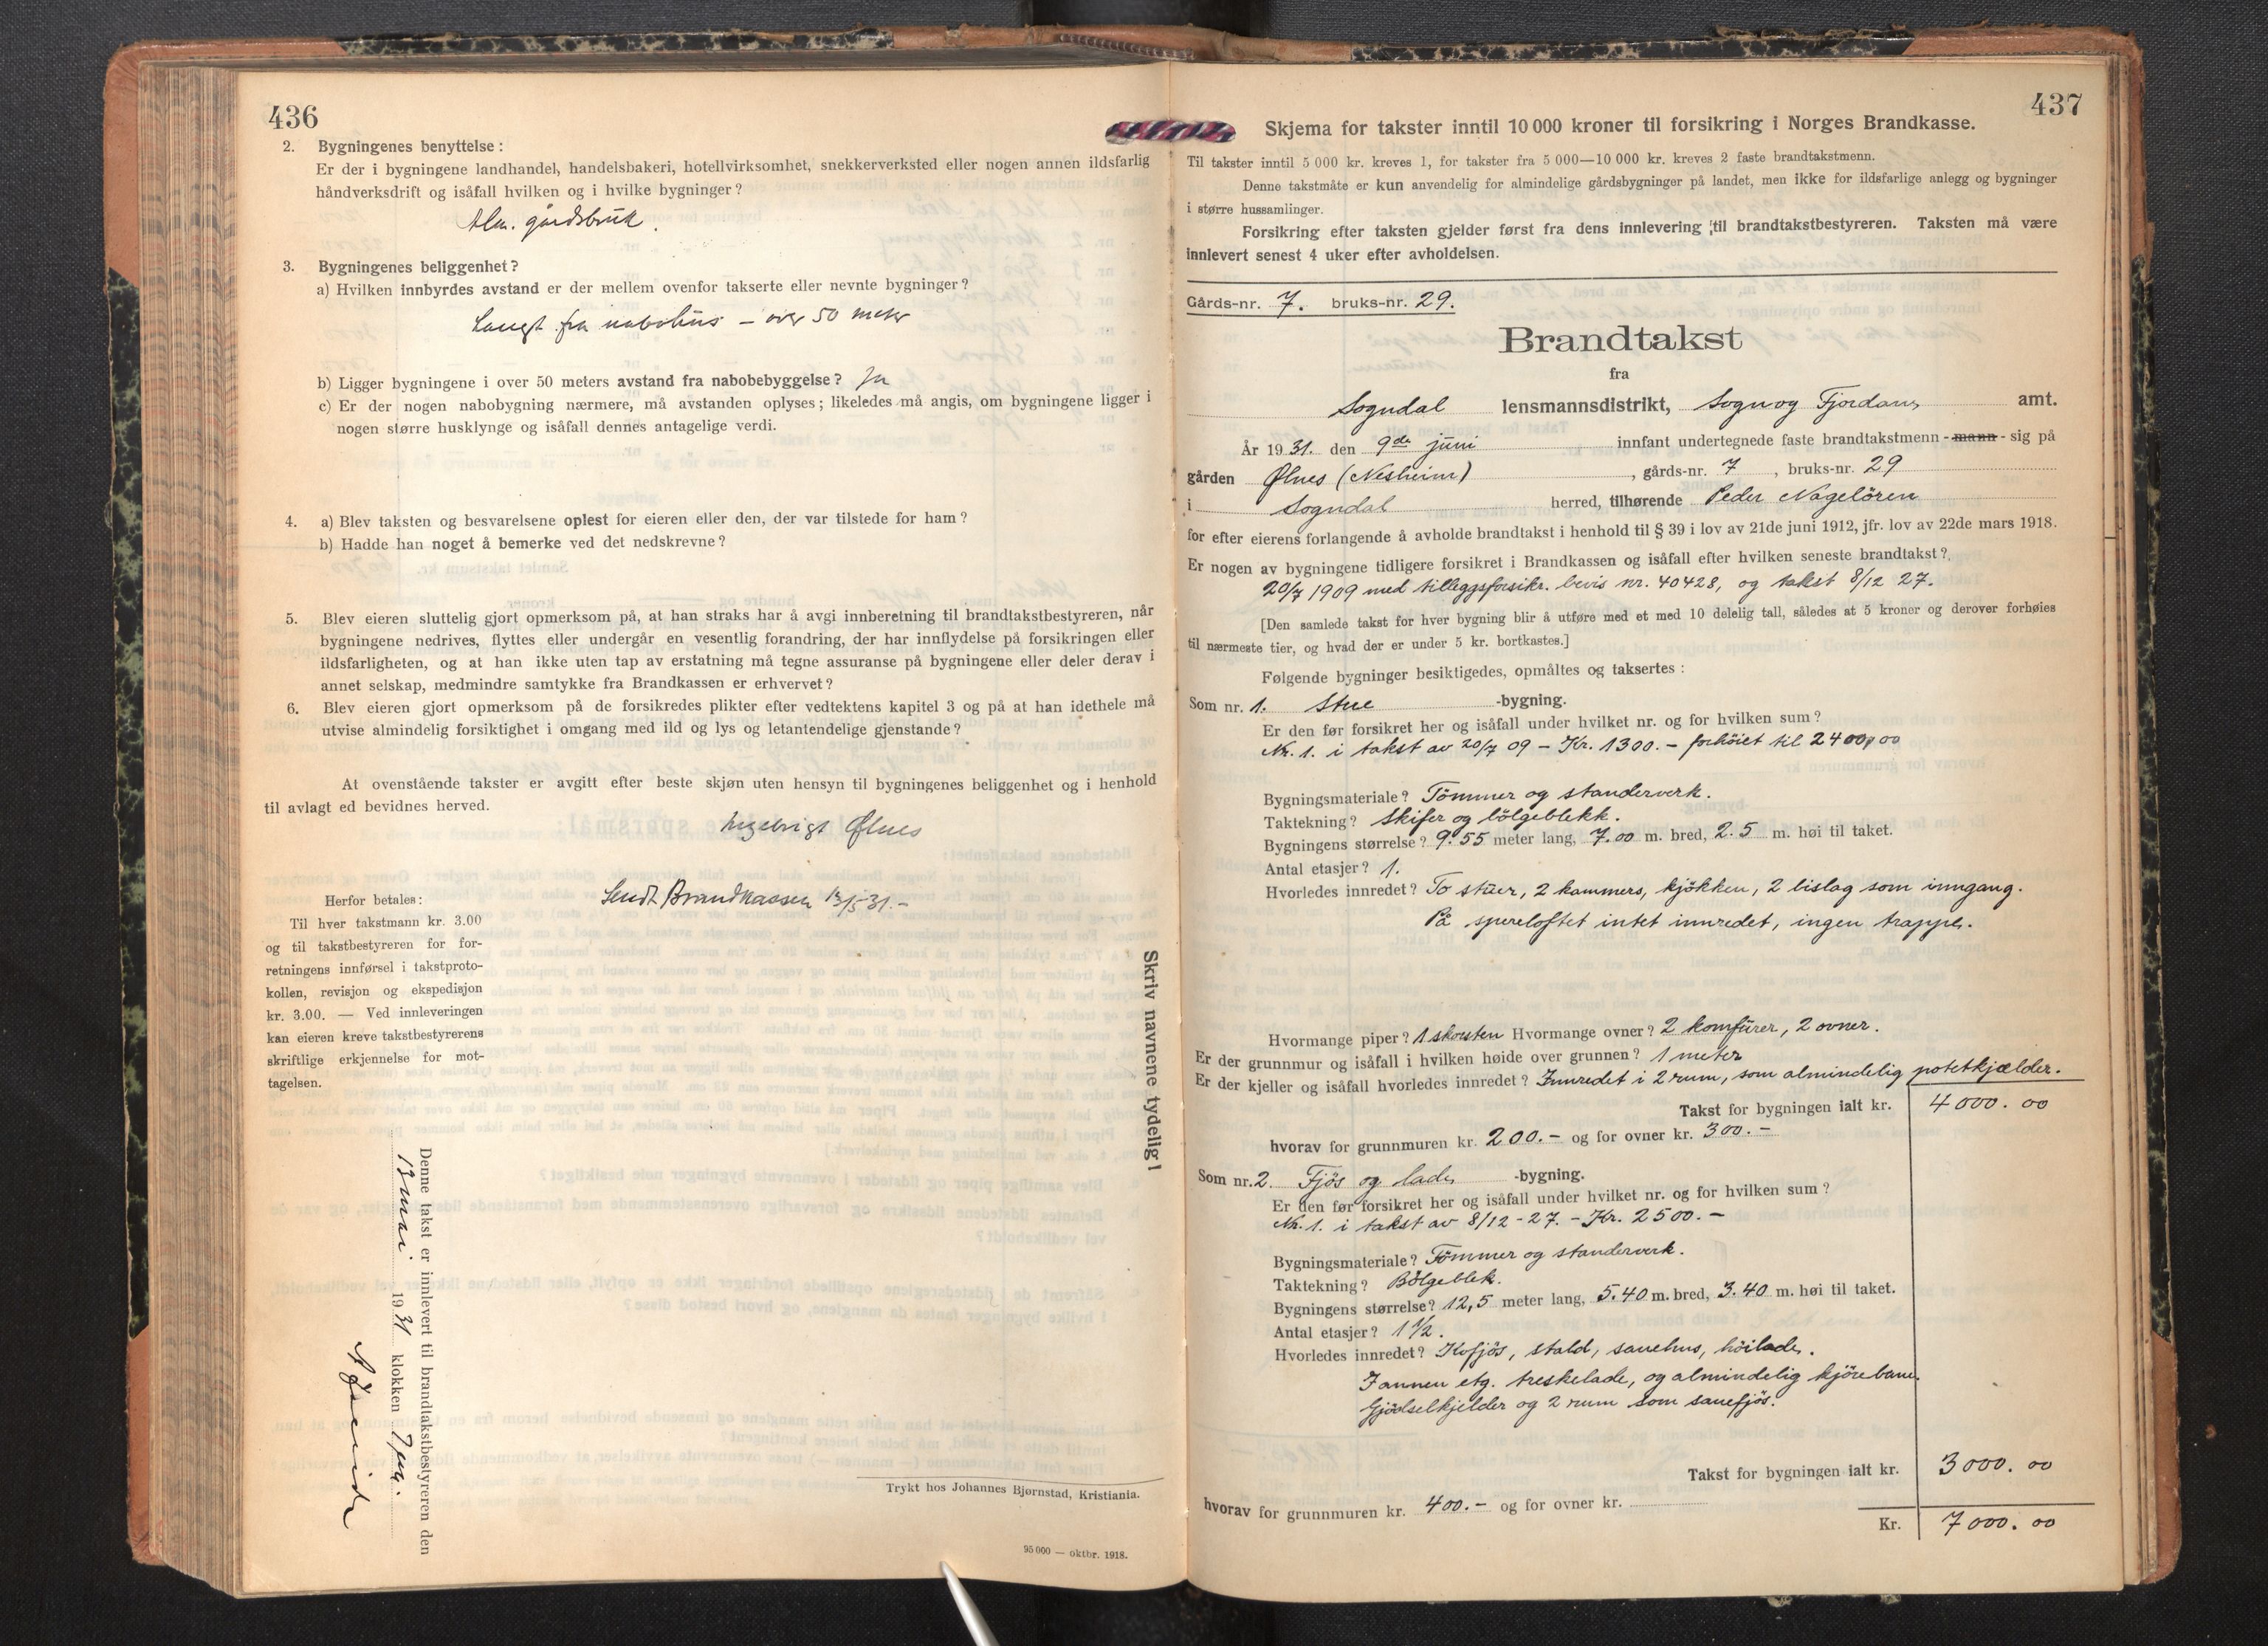 436
2. Bygningenes benyttelse :
Er der i bygningene landhandel, handelsbakeri, hotellvirksomhet, snekkerverksted eller nogen annen ildsfarlig
håndverksdrift og isåfall hvilken og i hvilke bygninger ?
Alm. gårdsbruk.
3. Bygningenes beliggenhet ?
a) Hvilken innbyrdes avstand er der mellem ovenfor takserte eller nevnte bygninger ?
Langt fra nabohus – over 50 meter
b) Ligger bygningene i over 50 meters avstand fra nabobebyggelse ? Ja
c) Er der nogen nabobygning nærmere, må avstanden oplyses ; likeledes må angis, om bygningene ligger i
nogen større husklynge og isåfall dennes antagelige verdi.
4. a) Blev taksten og besvarelsene oplest for eieren eller den, der var tilstede for ham ?
b) Hadde han noget å bemerke ved det nedskrevne ?
5. Blev eieren sluttelig gjort opmerksom på, at han straks har å avgi innberetning til brandtakstbestyreren, når
bygningene nedrives, flyttes eller undergår en vesentlig forandring, der har innflydelse på forsikringen eller
ildsfarligheten, og at han ikke uten tap av erstatning må tegne assuranse på bygningene eller deler derav i
annet selskap, medmindre samtykke fra Brandkassen er erhvervet ?
6. Blev eieren gjort opmerksom på de forsikredes plikter efter vedtektens kapitel 3 og på at han idethele må
utvise almindelig forsiktighet i omgang med ild og lys og letantendelige gjenstande ?
At ovenstående takster er avgitt efter beste skjøn uten hensyn til bygningenes beliggenhet og i henhold
til avlagt ed bevidnes herved.
Ingebrigt Ølnes
Sendt Brandkassen 13/5 31.–
Herfor betales :
Til hver takstmann kr. 3.00
og til takstbestyreren for for-
retningens innførsel i takstproto-
kollen, revisjon og ekspedisjon
kr. 3.00. — Ved innleveringen
kan eieren kreve takstbestyrerens
skriftlige erkjennelse for mot-
tagelsen.
Skriv navnene tydelig !
Denne takst er innlevert til brandtakstbestyreren den
13 mai 19 31 klokken
Trykt hos Johannes Bjørnstad, Kristiania.
95 000 — oktbr. 1918.
437
Skjema for takster inntil 10 000 kroner til forsikring i Norges Brandkasse.
Til takster inntil 5 000 kr. kreves 1, for takster fra 5 000—10 000 kr. kreves 2 faste brandtakstmenn.
Denne takstmåte er kun anvendelig for almindelige gårdsbygninger på landet, men ikke for ildsfarlige anlegg og bygninger
i større hussamlinger.
Forsikring efter taksten gjelder først fra dens innlevering til brandtakstbestyreren. Taksten må være
innlevert senest 4 uker efter avholdelsen.
Gårds-nr. 7. bruks-nr. 29.
Brandtakst
fra
Sogndal lensmannsdistrikt, Sogn og Fjordane amt.
År 19 31. den 9de juni innfant undertegnede faste brandtakstmenn - mann - sig på
gården Ølnes (Nesheim), gårds-nr. 7, bruks-nr. 29
i Sogndal herred, tilhørende Peder Nagelören
for efter eierens forlangende å avholde brandtakst i henhold til § 39 i lov av 21de juni 1912, jfr. lov av 22de mars 1918.
Er nogen av bygningene tidligere forsikret i Brandkassen og isåfall efter hvilken seneste brandtakst ?
20/7 1909 med tilleggsforsikr. bevis nr. 40428, og takst 8/12 27.
[Den samlede takst for hver bygning blir å utføre med et med 10 delelig tall, således at 5 kroner og derover forhøies
til nærmeste tier, og hvad der er under 5 kr. bortkastes.]
Følgende bygninger besiktigedes, opmåltes og taksertes :
Som nr. 1. Stue -bygning.
Er den før forsikret her og isåfall under hvilket nr. og for hvilken sum ?
Nr. 1. i takst av 20/7 09 – Kr. 1300.– forhöiet til 2400,00
Bygningsmateriale ? Tömmer og standerverk.
Taktekning ? Skifer og bölgeblekk.
Bygningens størrelse ? 9.55 meter lang, 7.00 m. bred, 2.5 m. høi til taket.
Antal etasjer ? 1.
Hvorledes innredet ? To stuer, 2 kammers, kjökken, 2 bislag som inngang.
På spereloftet intet innredet, ingen trappe.
Hvormange piper ? 1 skorsten Hvormange ovner ? 2 komfürer, 2 ovner.
Er der grunnmur og isåfall i hvilken høide over grunnen ? 1 meter
Er der kjeller og isåfall hvorledes innredet ? Innredet i 2 rum, som almindelig potetkjælder.
Takst for bygningen ialt kr. 4000.00
hvorav for grunnmuren kr. 200.– og for ovner kr. 300.–
Som nr. 2. Fjös og lade -bygning.
Er den før forsikret her og isåfall under hvilket nr. og for hvilken sum ?
Nr. 1. i takst av 8/12 - 27. – Kr. 2500.–
Bygningsmateriale ? Tömmer og standerverk.
Taktekning ? Bölgeblek.
Bygningens størrelse ? 12,5 meter lang, 5.40 m. bred, 3.40 m. høi til taket.
Antal etasjer ? 1 1/2.
Hvorledes innredet ? Kufjös, stald, sauehus, höilade.
I annen etg. treskelade, og almindelig kjörebane.
Gjödselkjelder og 2 rum som sauefjös.
Takst for bygningen ialt kr. 3000.00
hvorav for grunnmuren kr. 400.– og for ovner kr.
Kr. 7000.00